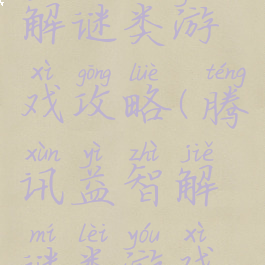 解谜类游
xì gōng lüè téng
戏攻略(腾
xùn yì zhì jiě
讯益智解
mí lèi yóu xì
谜类游戏